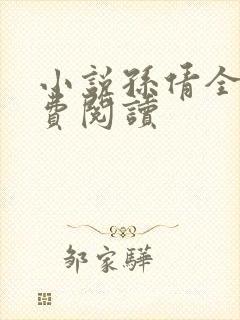 小說孫倩全
費閱讀
邹家驊